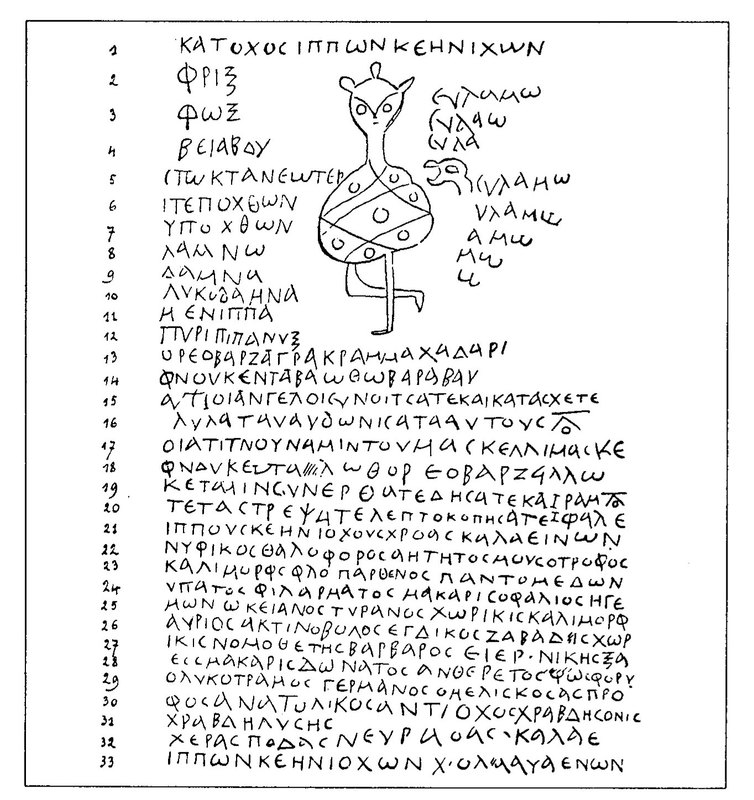 1 ΚΑΤΟΧΟϹΙΠΠΩΝΚΕΗΝΙΧΩΝ
2 ΦΡΙΞ
3 ΦΩΞ
ΕΥΛΑΜΩ
ΕΥΛΑΩ
4 ΒΕΙΑΒΟΥ
ΕΥΛΑ
5 ϹΤΩΚΤΑΝΕΩΤΕΡ
ϹΥΛΑΜΩ
6 ΙΤΕΠΟΧΘΩΝ
ΥΛΑΜΩ
7 ΥΠΟΧΘΩΝ
ΑΜΩ
8 ΛΑΜΝΩ
ΜΩ
9 ΔΑΜΝΑ
Ω
10 ΛΥΚΟΔΑΜΝΑ
11 ΜΕΝΙΠΠΑ
12 ΠΥΡΙΠΙΠΑΝΥΞ
13 ΟΡΕΟΒΑΡΖΑΓΡΑΚΡΑΜΜΑΧΑΔΑΡΙ
14 ΦΝΟΥΚΕΝΤΑΒΑΩΘΩΒΑΡΑΒΑΥ
15 ΟΙΑΝΓΕΛΟΙϹΥΝΟΙΤϹΑΤΕΚΑΙΚΑΤΑϹΧΕΤΕ
16 ΛΥΛΑΤΑΝΑΥΔΩΝΙϹΑΤΑΑΥΤΟΥϹ
17 ΟΙΑΤΙΤΝΟΥΝΑΜΙΝΤΟΥΜΑϹΚΕΛΛΙΜΑϹΚΕ
18 ΦΝΟΥΚΕΝΤΑ ΛΩΘΟΡΕΟΒΑΡΖΑΛΛΩ
19 ΚΕΤΑΜΙΝϹΥΝΕΡΘΑΤΕΔΗϹΑΤΕΚΑΙΡΑΜ
20 ΤΕΤΑϹΤΡΕΨΑΤΕΛΕΠΤΟΚΟΠΗϹΑΤΕΙΦΑΛΕ
21 ΙΠΠΟΥϹΚΕΗΝΙΟΧΟΥϹΧΡΟΑϹΚΑΛΑΕΙΝΩΝ
22 ΝΥΦΙΚΟϹΘΑΛΟΦΟΡΟϹΑΗΤΗΤΟϹΜΟΥϹΟΤΡΟΦΟϹ
23 ΚΑΛΙΜΟΡΦϹΦΛΟΠΑΡΘΕΝΟϹΠΑΝΤΟΜΕΔΩΝ
24 ΥΠΑΤΟϹΦΙΛΑΡΜΑΤΟϹΜΑΚΑΡΙϹΟΦΑΛΙΟϹΗΓΕ
25 ΜΩΝΩΚΕΙΑΝΟϹΤΥΡΑΝΟϹΧΩΡΙΚΙϹΚΑΛΙΜΟΡΦ
26 ΑΥΡΙΟϹΑΚΤΙΝΟΒΟΛΟϹΕΓΔΙΚΟϹΖΑΒΑΔΗϹΧΩΡ
27 ΙΚΙϹΝΟΜΟΘΕΤΗϹΒΑΡΒΑΡΟϹΕΙΕΡ·ΝΙΚΗϹΞΑ
28 ΕϹϹΜΑΚΑΡΙϹΔΩΝΑΤΟϹΑΝΘΕΡΕΤΟϹΦΩϹΦΟΡΥ
29 ΟΛΥΚΟΤΡΑΜΟϹΓΕΡΜΑΝΟϹΟΜΕΛΙϹΚΟϹΑϹΠΡΟ
30 ΦΟϹΑΝΑΤΟΛΙΚΟϹΑΝΤΙΟΧΟϹΧΡΑΒΔΗϹΟΝΙϹ
31 ΧΡΑΒΔΗΛΥϹΗϹ
32 ΧΕΡΑϹΠΟΔΑϹΝΕΥΡΑΟΑϹ·ΚΑΛΑΕ
33 ΙΠΠΩΝΚΕΗΝΙΟΧΩΝΧ·ΟΛΜΑΥΑΕΝΩΝ